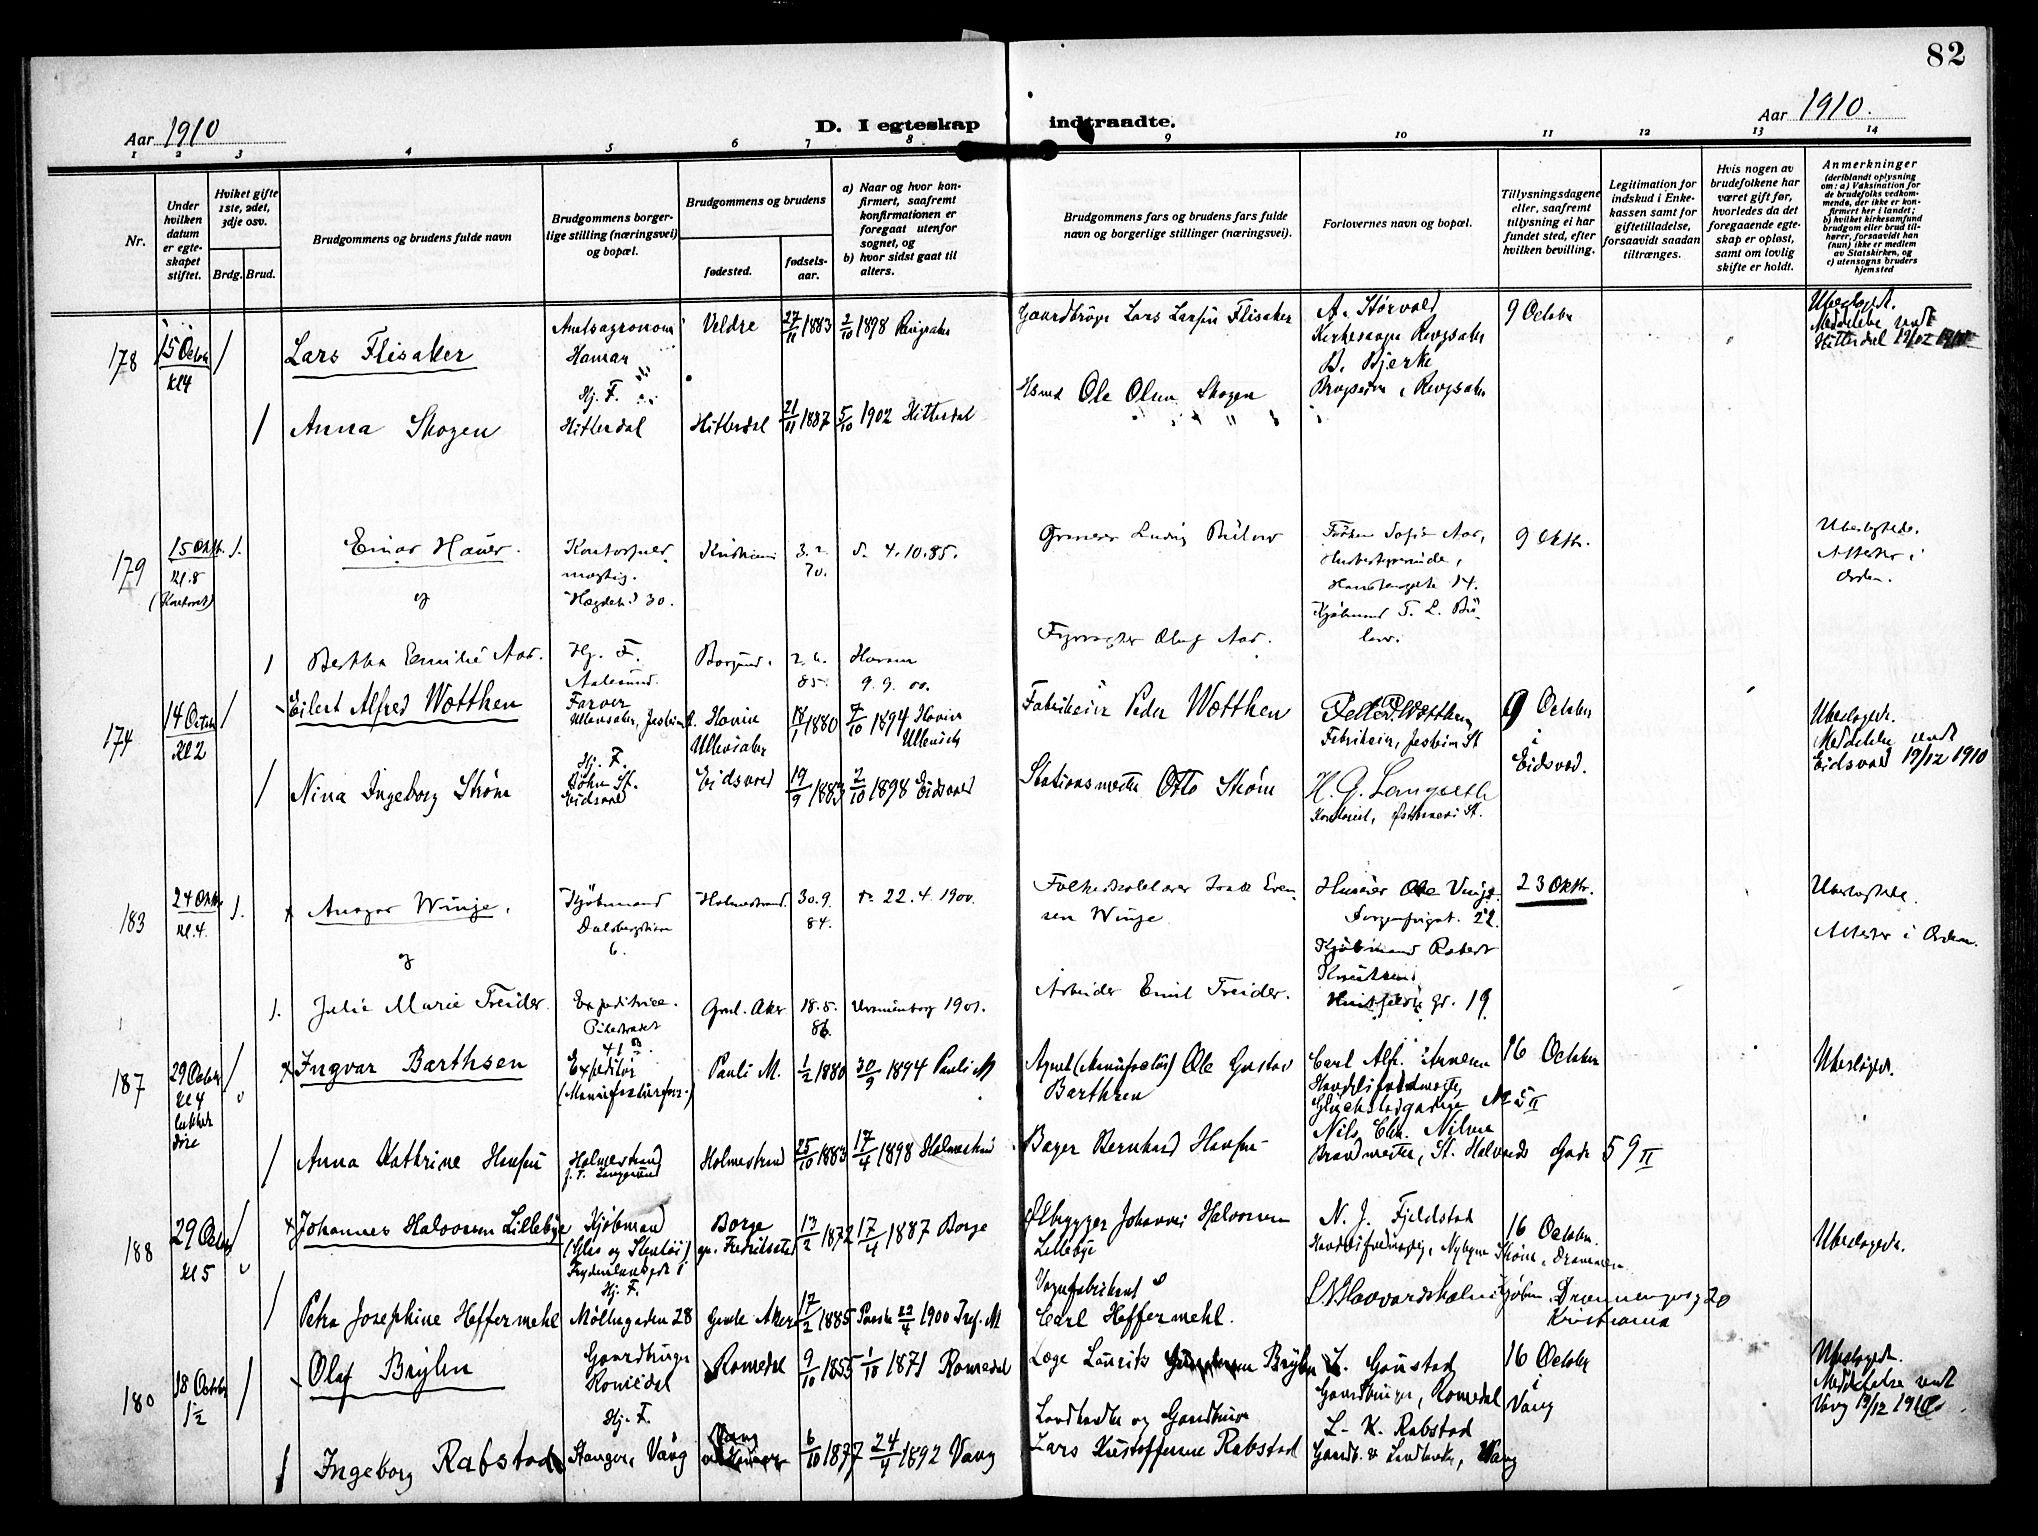 82
Aar 1910
D. I egteskap indtraadte.
Aar 1910.
1 2 3 4 5 6 7 8 9 10 11 12 13 14
Nr.
Under hvilken datum er egteskapet stiftet.
Hvilket gifte 1ste, 2det, 3dje osv.
Brdg. Brud.
Brudgommens og brudens fulde navn
Brudgommens borgerlige stilling (næringsvei) og bopæl.
Brudgommens og brudens
fødested.
fødselsaar.
a) Naar og hvor konfirmert, saafremt konfirmationen er foregaat utenfor sognet, og
b) hvor sidst gaat til alters.
Brudgommens fars og brudens fars fulde navn og borgerlige stillinger (næringsvei).
Forlovernes navn og bopæl.
Tillysningsdagene eller, saafremt tillysning ei har fundet sted, efter hvilken bevilling.
Legitimation for indskud i Enkekassen samt for giftetilladelse, forsaavidt saadan tiltrænges.
Hvis nogen av brudefolkene har været gift før, hvorledes da det foregaaende egteskap er opløst, samt om lovlig skifte er holdt.
Anmerkninger
(deriblandt oplysning om: a) Vaksination for de brudefolks vedkommende, der ikke er konfirmert her i landet; b) hvilket kirkesamfund brudgom eller brud tilhører, forsaavidt han (hun) ikke er medlem av Statskirken, og c) utensogns bruders hjemsted
178 15 Octobr Kl 4 1 Lars Flisaker Amtsagronom Hamar Veldre 27/11 1883 2/10 1898 Ringsaker Gaardbruger Lars Larsen Flisaker A. Størvold Kirkesanger Ringsaker B. Bjerke 9 October Ubeslægt. Meddelelse sendt Hitterdal 19/12 1910
1 Anna Skogen Hj. F. Hitterdal Hitterdal 21/11 1887 5/10 1902 Hitterdal Hsmd Ole Olsen Skogen
179 15 Oktr. Kl. 8 (Kontoret) 1. Einar Hauer. Kontorfuldmægtig. Hegdeh. 30. Kristiania 3. 2. 70. d. 4.10.85. Grosserer Ludvig Bülow Frøken Sofie Aas, 9 Oktr. Ubeslægtede. Attester i Orden.
og
1 Bertha Emilie Aas. Hj. F. Aalesund. Borgund. 2. 6. 85. Haram 9. 9. 00. Fyrvogter Oluf Aas. Kjøbmand T. L. Bülow.
174 14 Octobr Kl 2 1 Eilert Alfred Wotthen Farver Ullensaker, Jesheim St. Hovin Ullensaker 18/1 1880 7/10 1894 Hovin Ullensak Fabrikeier Peder Wotthen Peder Wotthen Fabrikeier, Jesheim St 9 October i Eidsvold. Ubeslægt. Meddelelse sendt Eidsvold 19/12 1910
1 Nina Ingeborg Strøm Hj. F. Bøhn St. Eidsvold Eidsvold 19/9 1883 2/10 1898 Eidsvold Stationsmester Otto Strøm H. G. Langseth
183 24 Oktr. Kl. 4. 1. Ansgar Winge. Kjøbmand Dalsbergstien 6. Holmestrand. 30. 9. 84. d. 22. 4. 1900. Folkeskolelærer Isak Evensen Winge Huseier Ole Vinge. Sorgenfrigt. 22. 23 Oktr. Ubeslægtede. Attester i Orden.
og
1. Julie Marie Treider. Expeditrice. Pilestrædet 41 B. Grul. Aker 18. 5. 86. Uranienborg 1901. Arbeider Emil Treider. Kjøbmand Robert Knutsen Huitfeldts gt. 19
187 29 October Kl 4 lukkede døre 1 Ingvar Barthsen Expeditør (Manufacturforr.) Pauli M. 1/2 1880 30/9 1894 Pauli M Agent (Manufactur) Ole Gustav Barthsen Carl Alf. Arnesen Handelsfuldmægtig, Glückstadgaden No 5 II 16 October Ubeslægt.
1 Anna Kathrine Hansen Holmestrand J. F. Langesund Holmestrand 25/10 1883 17/4 1898 Holmestrand Bager Bernhard Hansen Nils Chr. Nilsen Brandmester, St. Halvards Gade 59 II
188 29 October Kl 5 1 Johannes Halvorsen Lillebye Kjøbmand (Glas og Stentøi) Frydenlundsgt 1 Borge pr. Fredrikstad 13/2 1872 17/4 1887 Borge Ølbrygger Johannes Halvorsen Lillebye N. J. Fjeldstad 16 October. Ubeslægt.
1 Petra Josephine Heffermehl Hj. F. Møllergaden 28 Gamle Aker 17/2 1885 Paaske 22/4 1900 Tref. M Vognfabrikant Carl Heffermehl. Havvardsholm Kjøbm. Drammensveg 20 Kristiania
180 18 October 1 1/2 1 Olaf Bryhn Gaardbruger Romedal Romedal 9/10 1855 1/10 1871 Romedal Læge Laurits Bryhn L. Gaustad Gaardbruger, Romedal 16 October i Vang Ubeslægt. Meddelelse sendt Vang 19/12 1910
1 Ingeborg Rabstad Hj. F. Stanger, Vang Vang 6/10 1877 24/4 1892 Vang Landhandler og Gaardbruger Lars Kristoffersen Rabstad L. K. Rabstad Gaardb. & Landhandler, Vang